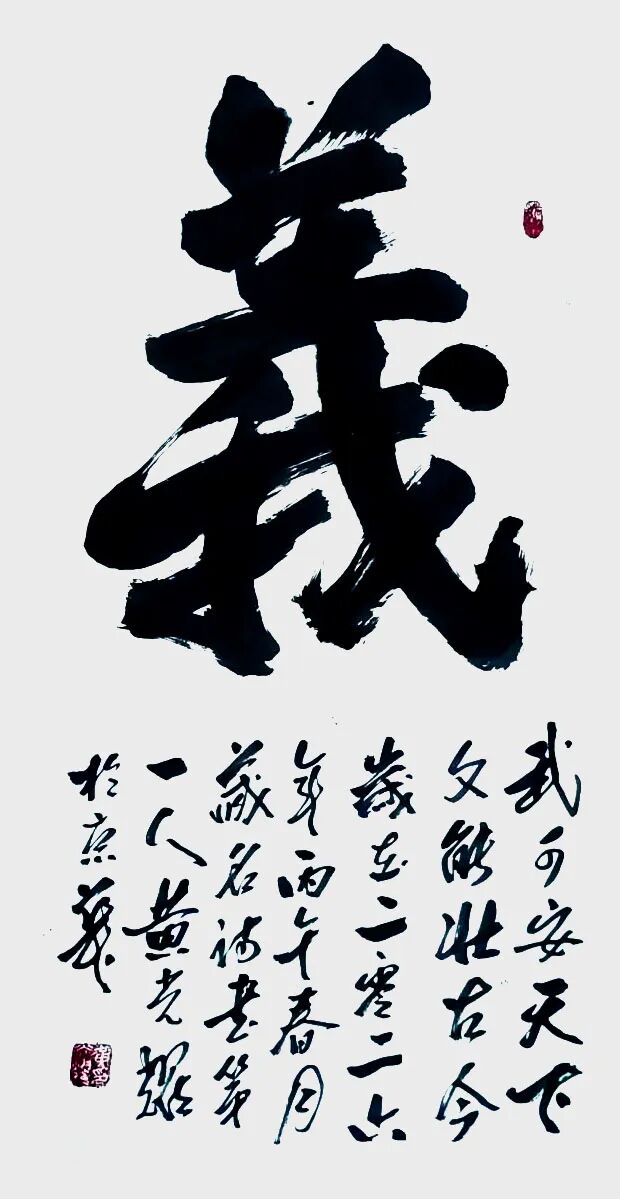 義
武可安天下
文能壯古今
歲在二零二六
年丙午春月
藏名詩書第
一人黄光耀
於京華